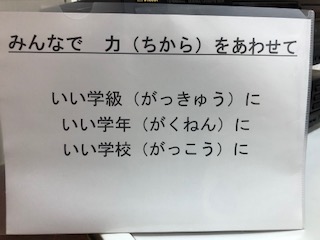 みんなで　力（ちから）をあわせて
いい学級（がっきゅう）に
いい学年（がくねん）に
いい学校（がっこう）に